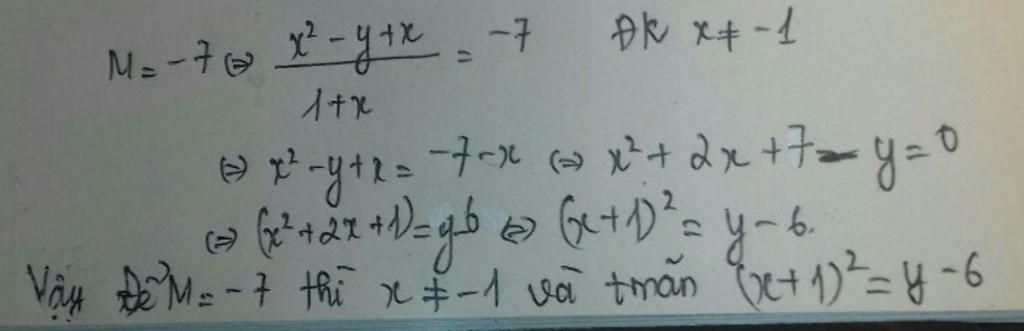 M = -7 ⇔ \frac{x² - y + x}{1 + x} = -7 ĐK x ≠ -1
⇔ x² - y + x = -7 - x ⇔ x² + 2x + 7 - y = 0
⇔ (x² + 2x + 1) = y - 6 ⇔ (x + 1)² = y - 6.
Vậy Để M = -7 thì x ≠ -1 và tmãn (x + 1)² = y - 6